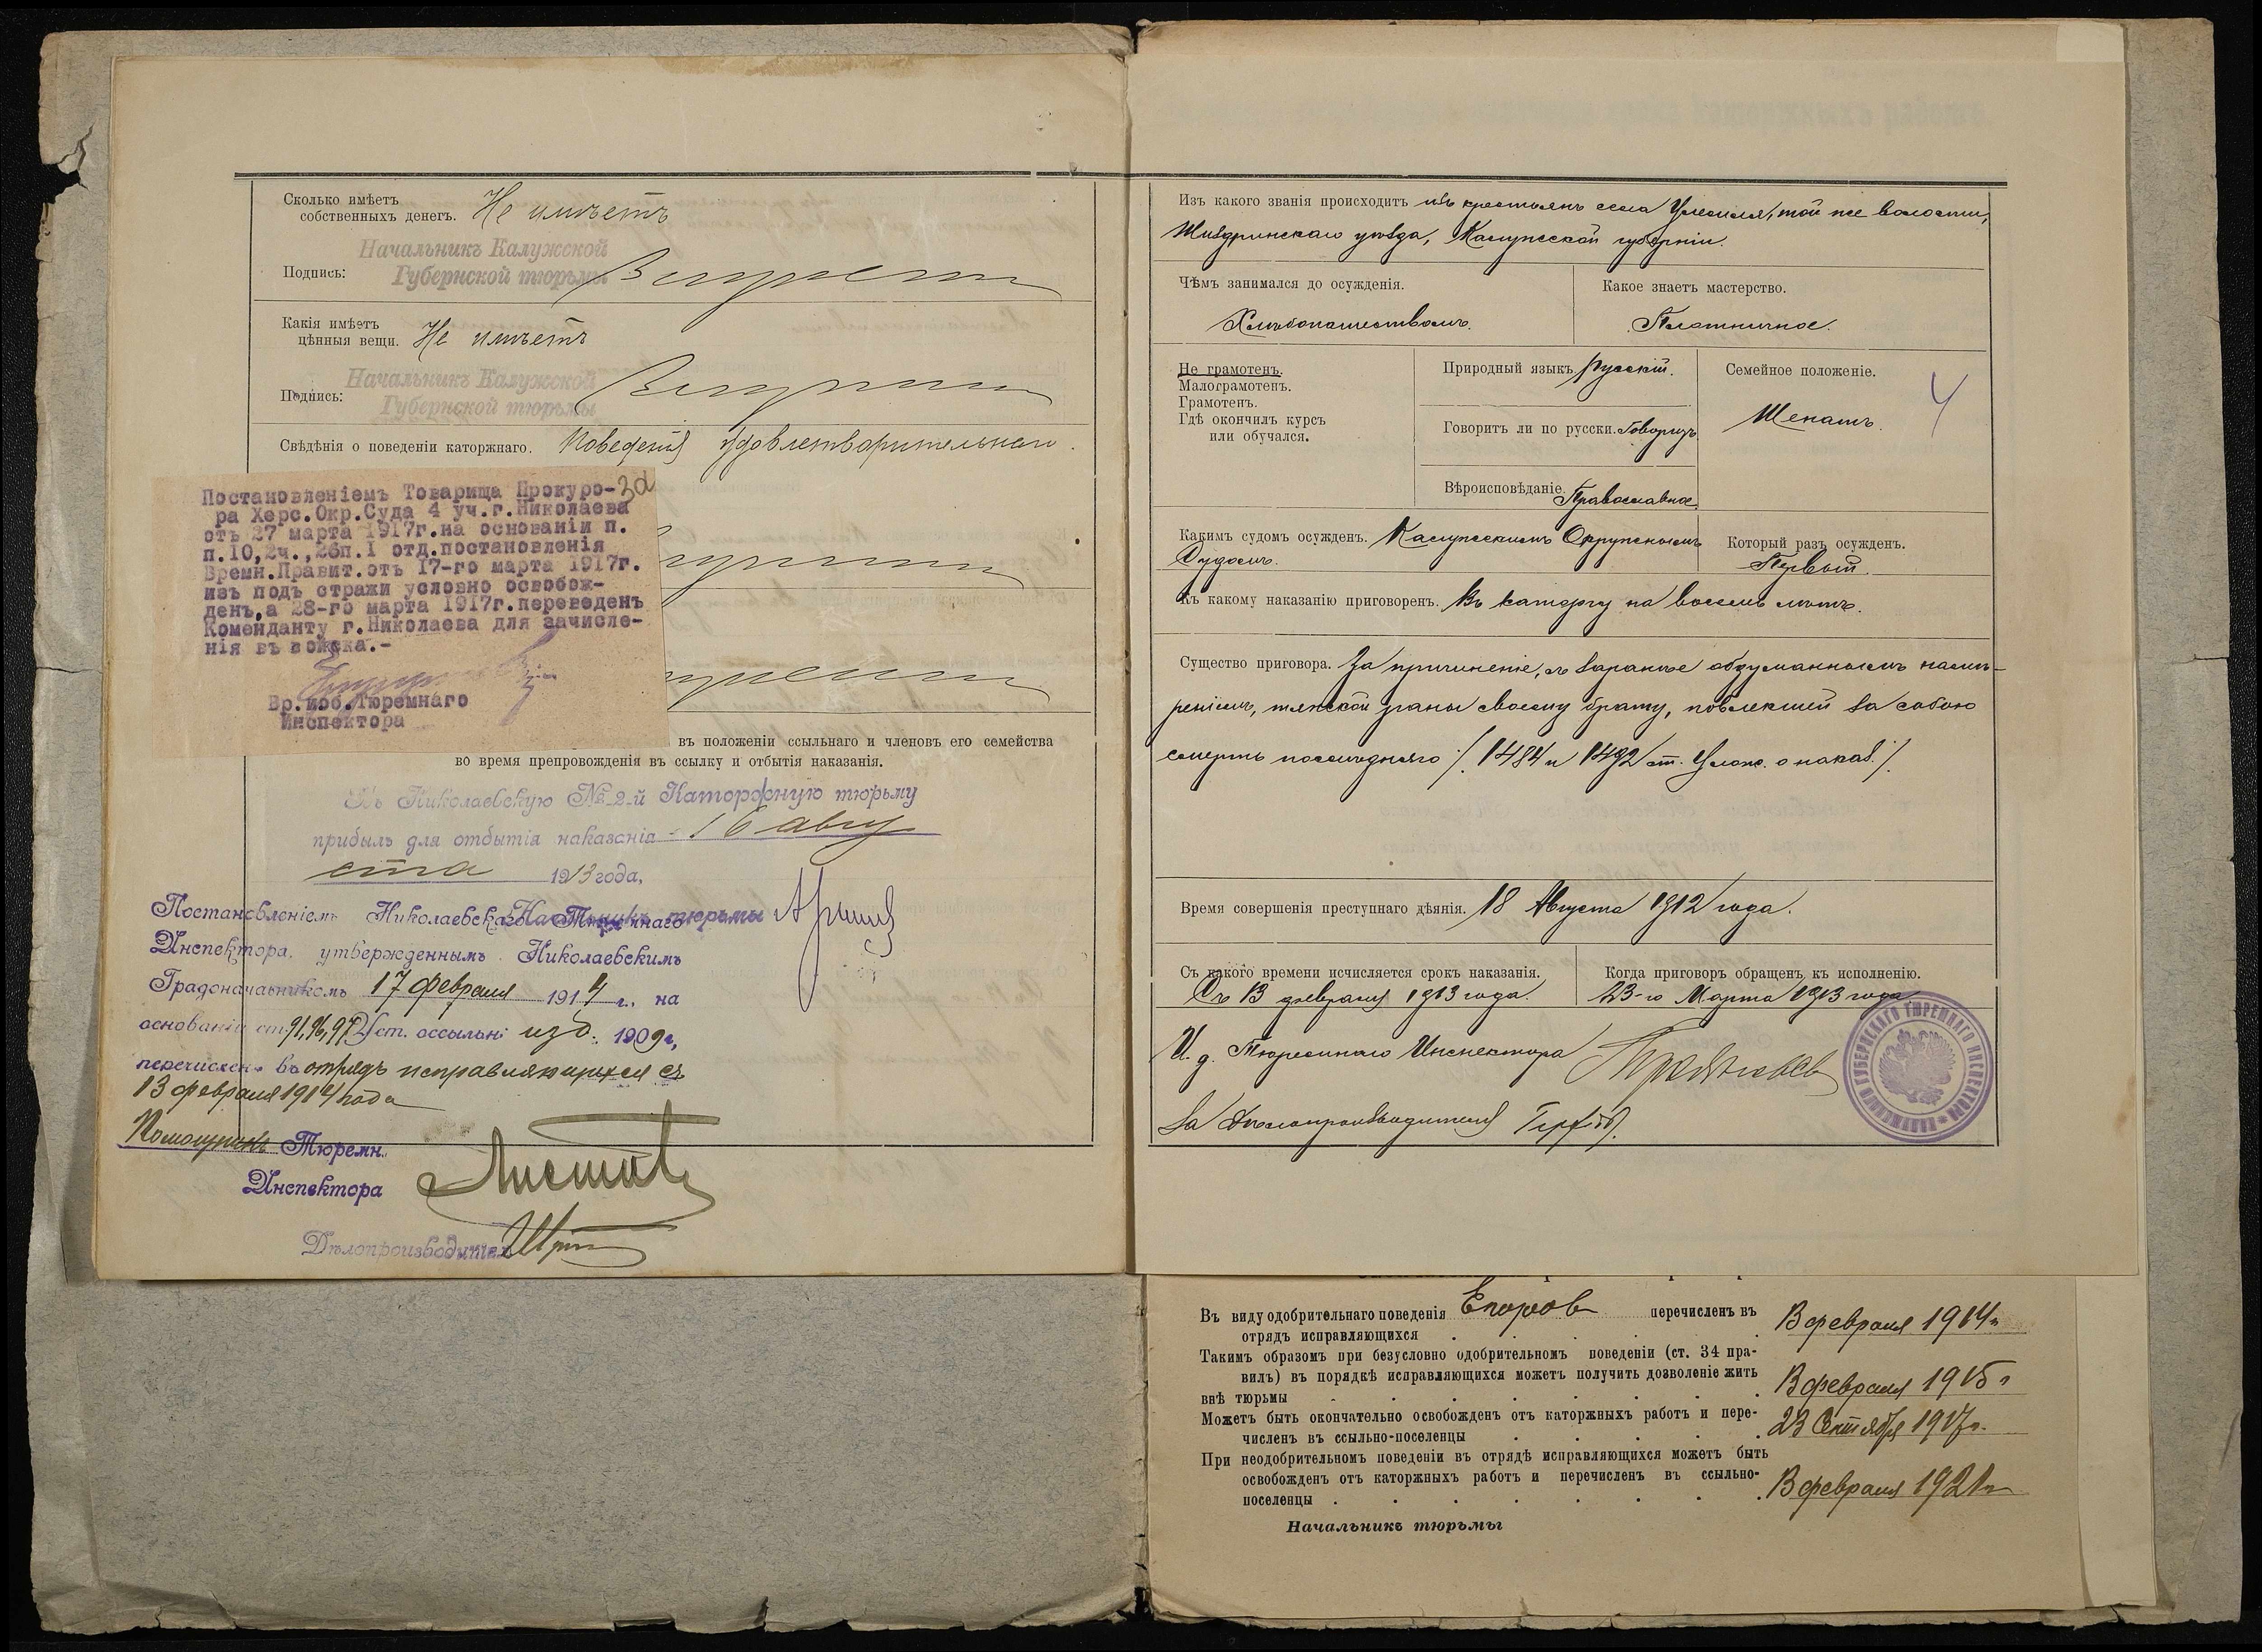 Сколько имѣетъ
собственныхъ денегъ. Не имѣетъ
Начальникъ Калужской
Подпись: Губернской тюрьмы
Какія имѣетъ
цѣнныя вещи. Не имѣетъ
Начальникъ Калужской
Подпись: Губернской тюрьмы
Свѣдѣнія о поведеніи каторжнаго. Поведенія удовлетворительнаго.
Постановленіемъ Товарища Прокуро-
ра Херс.Окр.Суда 4 уч.г.Николаева
отъ 27 марта 1917г.на основаніи п.
п.10,2ч.,26п.I отд.постановленія
Времн.Правит.отъ 17-го марта 1917г.
изъ подъ стражи условно освобож-
денъ,а 28-го марта 1917г.переведенъ
Коменданту г.Николаева для зачисле-
нія въ войска.-
Вр.исп.об.Тюремнаго
Инспектора
въ положеніи ссыльнаго и членовъ его семейства
во время препровожденія въ ссылку и отбытія наказанія.
Въ Николаевскую № 2-й Каторжную тюрьму
прибылъ для отбытія наказанія 16 авгу
ста 1913 года,
Начальникъ тюрьмы
Постановленіемъ Николаевскаго Тюремнаго
Инспектора, утвержденнымъ Николаевскимъ
Градоначальникомъ 17 февраля 1914 г., на
основаніи ст. 91, 96, 97 Уст. оссыльн: изд. 1909 г.,
перечисленъ въ отрядъ исправляющихся съ
13 февраля 1914 года
Помощникъ Тюремн.
Инспектора
Дѣлопроизводитель
Изъ какого званія происходитъ изъ крестьянъ села Улемля, той же волости,
Жиздринскаго уѣзда, Калужской губерніи.
Чѣмъ занимался до осужденія. Какое знаетъ мастерство.
Хлѣбопашествомъ. Плотничное.
Не грамотенъ.
Малограмотенъ.
Грамотенъ.
Гдѣ окончилъ курсъ
или обучался.
Природный языкъ Русскій.
Говоритъ ли по русски. Говоритъ
Вѣроисповѣданіе. Православное.
Семейное положеніе.
Женатъ.
4
Какимъ судомъ осужденъ. Калужскимъ Окружнымъ
Судомъ.
Который разъ осужденъ.
Первый.
Къ какому наказанію приговоренъ. Въ каторгу на восемь лѣтъ.
Существо приговора. За причиненіе, съ заранѣе обдуманнымъ намѣ-
реніемъ, тяжкой раны своему брату, повлекшей за собою
смерть послѣдняго /. 1484 и 1492 ст. Улож. о наказ. /.
Время совершенія преступнаго дѣянія. 18 Августа 1912 года.
Съ какого времени исчисляется срокъ наказанія. Когда приговоръ обращенъ къ исполненію.
Съ 13 февраля 1913 года. 23-го Марта 1913 года.
И. д. Тюремнаго Инспектора
За Дѣлопроизводителя
Въ виду одобрительнаго поведенія Егоровъ перечисленъ въ
отрядъ исправляющихся 13 февраля 1914 г.
Такимъ образомъ при безусловно одобрительномъ поведеніи (ст. 34 пра-
вилъ) въ порядкѣ исправляющихся можетъ получить дозволеніе жить
внѣ тюрьмы 13 февраля 1915 г.
Можетъ быть окончательно освобожденъ отъ каторжныхъ работъ и пере-
численъ въ ссыльно-поселенцы 23 Сентября 1917 г.
При неодобрительномъ поведеніи въ отрядѣ исправляющихся можетъ быть
освобожденъ отъ каторжныхъ работъ и перечисленъ въ ссыльно-
поселенцы 13 февраля 1921 г.
Начальникъ тюрьмы